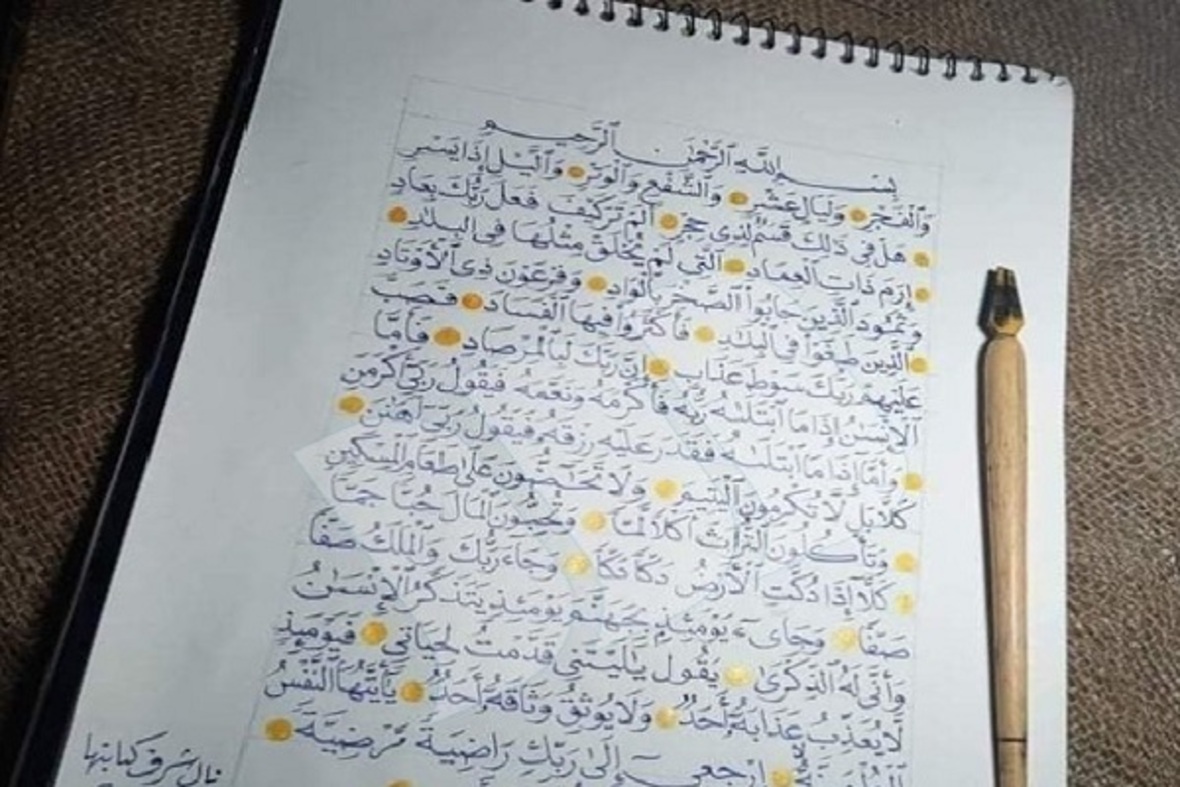 بِسْمِ ٱللَّهِ ٱلرَّحْمَٰنِ ٱلرَّحِيمِ
وَٱلْفَجْرِ وَلَيَالٍ عَشْرٍ وَٱلشَّفْعِ وَٱلْوَتْرِ وَٱلَّيْلِ إِذَا يَسْرِ
هَلْ فِى ذَٰلِكَ قَسَمٌ لِّذِى حِجْرٍ أَلَمْ تَرَ كَيْفَ فَعَلَ رَبُّكَ بِعَادٍ
إِرَمَ ذَاتِ ٱلْعِمَادِ ٱلَّتِى لَمْ يُخْلَقْ مِثْلُهَا فِى ٱلْبِلَٰدِ
وَثَمُودَ ٱلَّذِينَ جَابُوا۟ ٱلصَّخْرَ بِٱلْوَادِ وَفِرْعَوْنَ ذِى ٱلْأَوْتَادِ
ٱلَّذِينَ طَغَوْا۟ فِى ٱلْبِلَٰدِ فَأَكْثَرُوا۟ فِيهَا ٱلْفَسَادَ فَصَبَّ
عَلَيْهِمْ رَبُّكَ سَوْطَ عَذَابٍ إِنَّ رَبَّكَ لَبِٱلْمِرْصَادِ فَأَمَّا
ٱلْإِنسَٰنُ إِذَا مَا ٱبْتَلَىٰهُ رَبُّهُۥ فَأَكْرَمَهُۥ وَنَعَّمَهُۥ فَيَقُولُ رَبِّىٓ أَكْرَمَنِ
وَأَمَّآ إِذَا مَا ٱبْتَلَىٰهُ فَقَدَرَ عَلَيْهِ رِزْقَهُۥ فَيَقُولُ رَبِّىٓ أَهَٰنَنِ
كَلَّا بَل لَّا تُكْرِمُونَ ٱلْيَتِيمَ وَلَا تَحَٰٓضُّونَ عَلَىٰ طَعَامِ ٱلْمِسْكِينِ
وَتَأْكُلُونَ ٱلتُّرَاثَ أَكْلًا لَّمًّا وَتُحِبُّونَ ٱلْمَالَ حُبًّا جَمًّا
كَلَّآ إِذَا دُكَّتِ ٱلْأَرْضُ دَكًّا دَكًّا وَجَآءَ رَبُّكَ وَٱلْمَلَكُ صَفًّا
صَفًّا وَجِا۟ىٓءَ يَوْمَئِذٍۭ بِجَهَنَّمَ يَوْمَئِذٍ يَتَذَكَّرُ ٱلْإِنسَٰنُ
وَأَنَّىٰ لَهُ ٱلذِّكْرَىٰ يَقُولُ يَٰلَيْتَنِى قَدَّمْتُ لِحَيَاتِى فَيَوْمَئِذٍ
لَّا يُعَذِّبُ عَذَابَهُۥٓ أَحَدٌ وَلَا يُوثِقُ وَثَاقَهُۥٓ أَحَدٌ يَٰٓأَيَّتُهَا ٱلنَّفْسُ
ٱرْجِعِىٓ إِلَىٰ رَبِّكِ رَاضِيَةً مَّرْضِيَّةً
نال شرف كتابتها